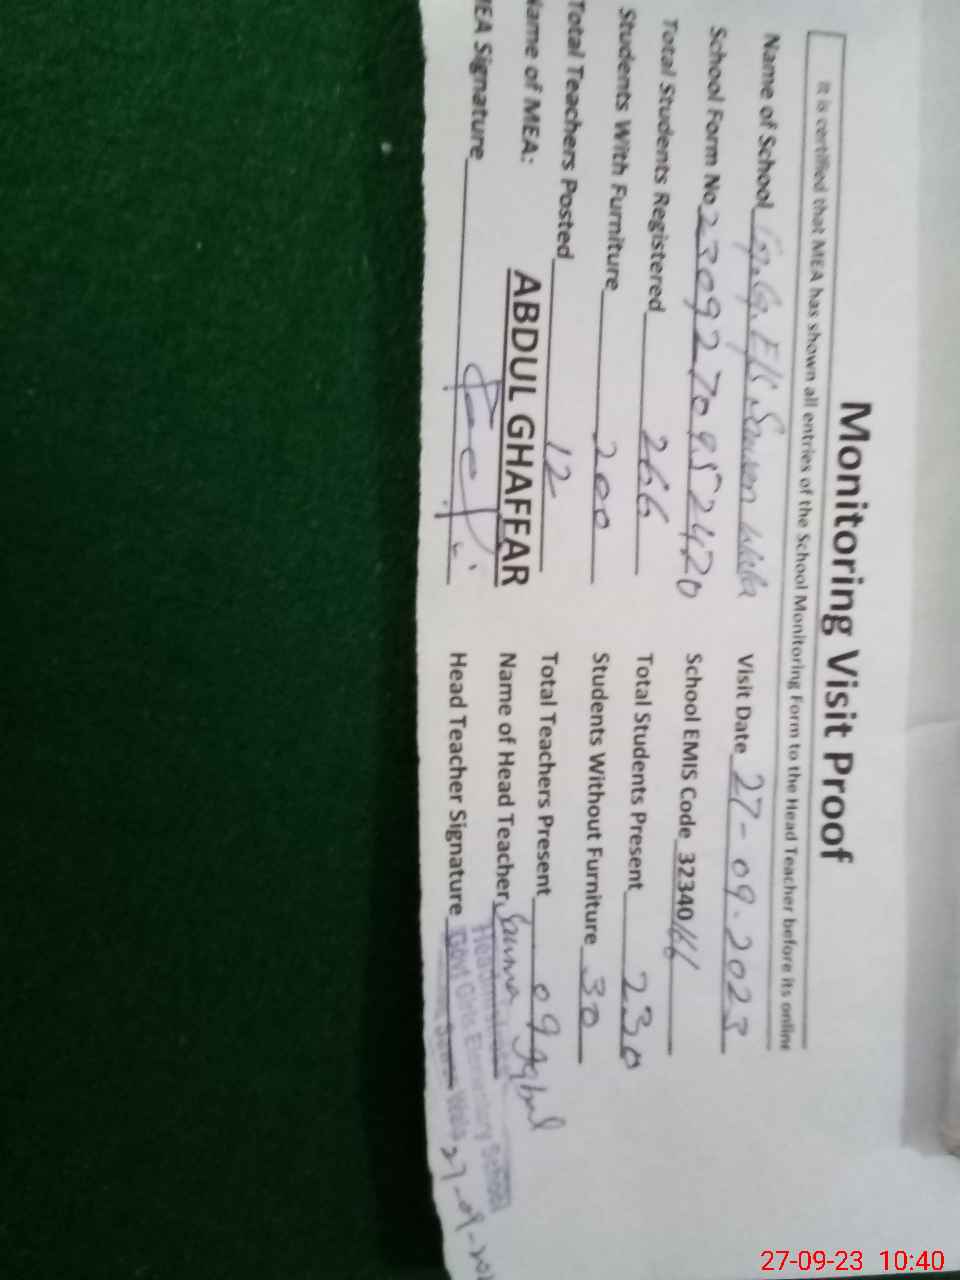 Monitoring Visit Proof
It is certified that MEA has shown all entries of the School Monitoring Form to the Head Teacher before its online
Name of School G.G.E/S Sawen Wala Visit Date 27-09-2023
School Form No 2309270952420 School EMIS Code 32340166
Total Students Registered 266 Total Students Present 230
Students With Furniture 200 Students Without Furniture 30
Total Teachers Posted 12 Total Teachers Present 09
Name of MEA: ABDUL GHAFFAR Name of Head Teacher Iqbal
MEA Signature Head Teacher Signature
Headmistress
Govt Girls Elementary School
Wala
27-09-202
27-09-23 10:40